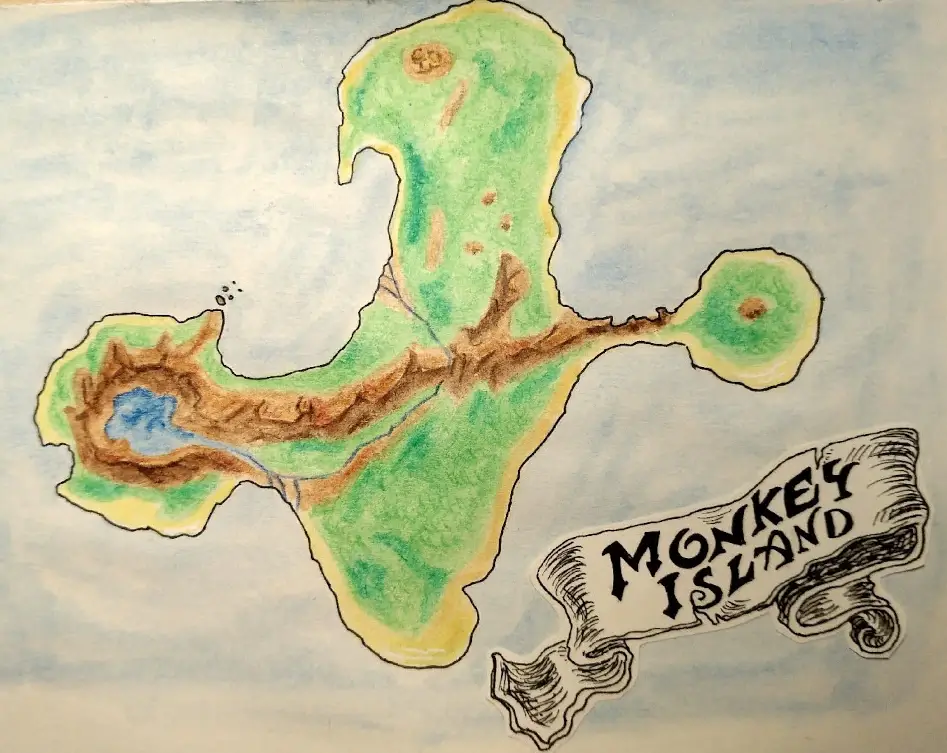 MONKEY
ISLAND